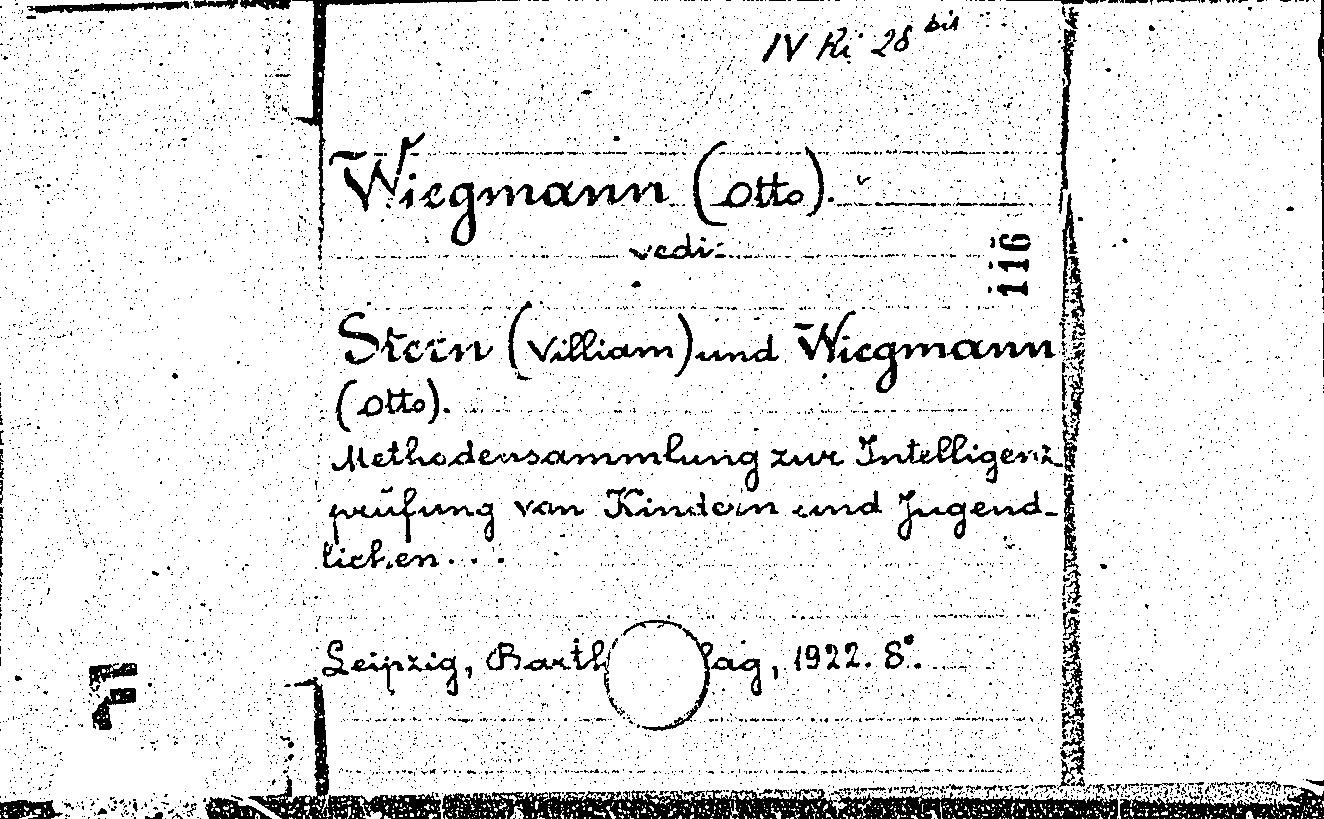 IV Ri 28 bis
Wiegmann (Otto).
vedi:
116
Stern (William) und Wiegmann
(Otto).
Methodensammlung zur Intelligenz
prüfung von Kindern und Jugend-
lichen...
Leipzig, Barth lag, 1922. 8°.
F